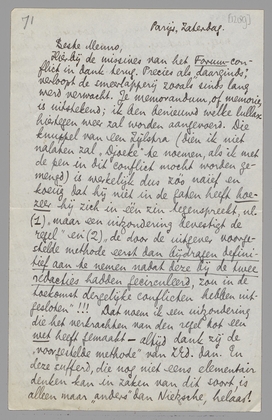 71
[1939]
Parijs, Zaterdag.
Beste Menno,
Hierbij de missives van het Forum-con-
flict in dank terug. Precies als "daarginds",
verloopt de smeerlapperij zooals sinds lang
werd verwacht. Je memorandum, of memorie,
is uitstekend; ik ben benieuwd welke lullax
hiertegen weer zal worden aangevoerd. Die
knuppel van een Zijlstra (dien ik niet
nalaten zal, Djoeke te noemen, als ik met
de pen in dit conflict mocht worden ge-
mengd) is werkelijk dus zoo naief en
koeiig dat hij niet in de gaten heeft hoe-
zeer hij zich in één zin tegenspreekt, nl.
(1) "maar een uitzondering bevestigt de
regel" en (2) "de door de uitgever voorge-
stelde methode eerst dan bijdragen defini-
tief aan te nemen nadat deze bij de twee
redacties hadden gecirculeerd, zou in de
toekomst dergelijke conflicten hebben uit-
gesloten"!!! Dat noem ik een uitzondering
die het verkrachten van den regel tot een
wet heeft gemaakt – altijd dank zij de
"voorgestelde methode" van Zijl. dan. In
deze sufferd, die nog niet eens elementair
denken kan in zaken van dit soort is
alleen maar "anders" dan Nietzsche, helaas!